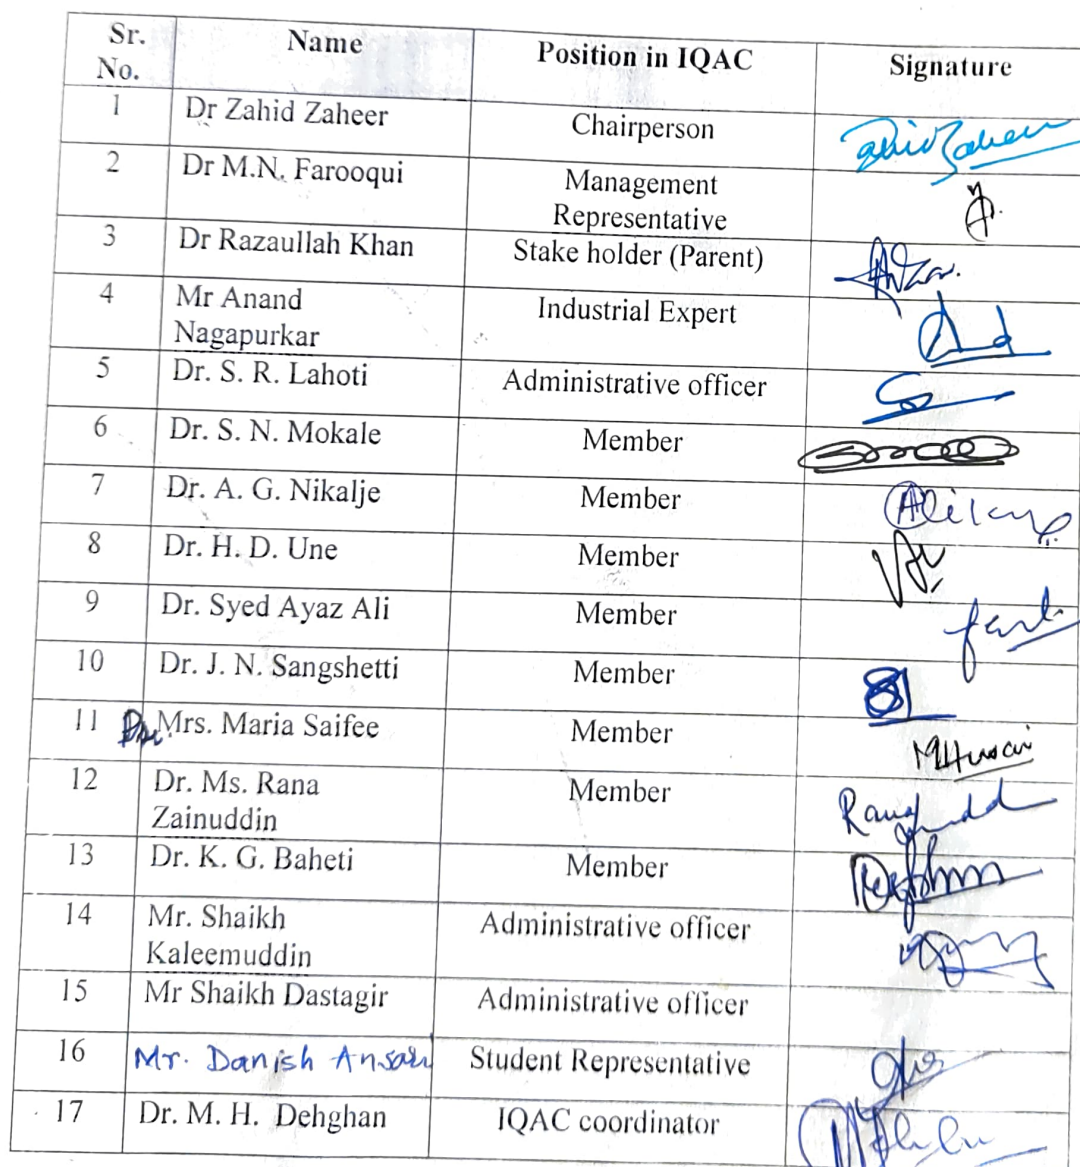 Sr. No. Name Position in IQAC Signature
1 Dr Zahid Zaheer Chairperson
2 Dr M.N. Farooqui Management Representative
3 Dr Razaullah Khan Stake holder (Parent)
4 Mr Anand Nagapurkar Industrial Expert
5 Dr. S. R. Lahoti Administrative officer
6 Dr. S. N. Mokale Member
7 Dr. A. G. Nikalje Member
8 Dr. H. D. Une Member
9 Dr. Syed Ayaz Ali Member
10 Dr. J. N. Sangshetti Member
11 Dr. Mrs. Maria Saifee Member
12 Dr. Ms. Rana Zainuddin Member
13 Dr. K. G. Baheti Member
14 Mr. Shaikh Kaleemuddin Administrative officer
15 Mr Shaikh Dastagir Administrative officer
16 Mr. Danish Ansari Student Representative
17 Dr. M. H. Dehghan IQAC coordinator